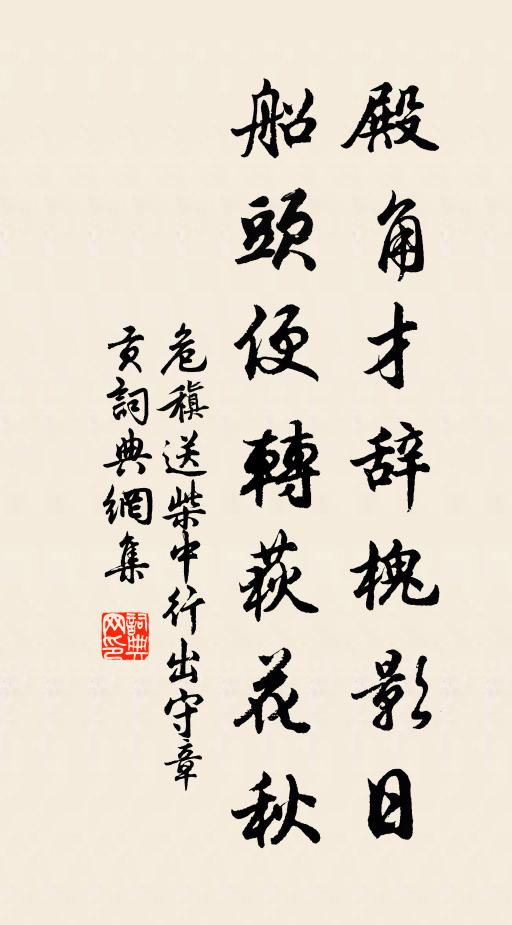 殿角才辞槐影日
船頭便轉萩花秋
危稹送柴中行出守章
贡詞典網集
詞典
网印